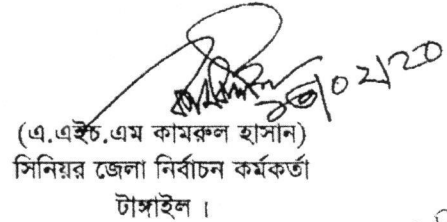 (এ.এইচ.এম কামরুল হাসান)
সিনিয়র জেলা নির্বাচন কর্মকর্তা
টাঙ্গাইল ।